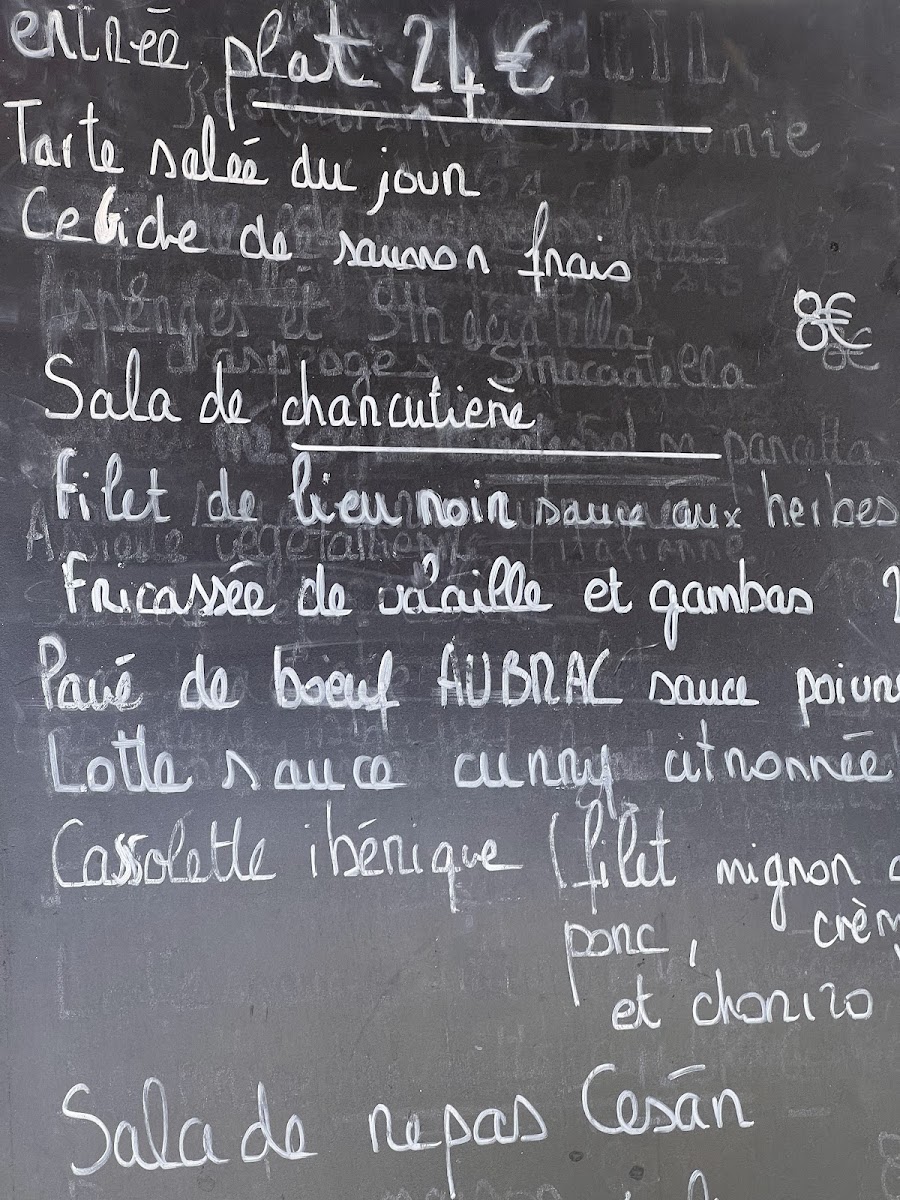 entrée plat 24€
Tarte salée du jour
Cebiche de saumon frais
8€
Salade charcutière
Filet de lieu noir sauce aux herbes
Fricassée de volaille et gambas
Pavé de boeuf AUBRAC sauce poivre
Lotte sauce curry citronnée
Cassolette ibérique (filet mignon
porc, crèm
et chorizo
Salade repas César